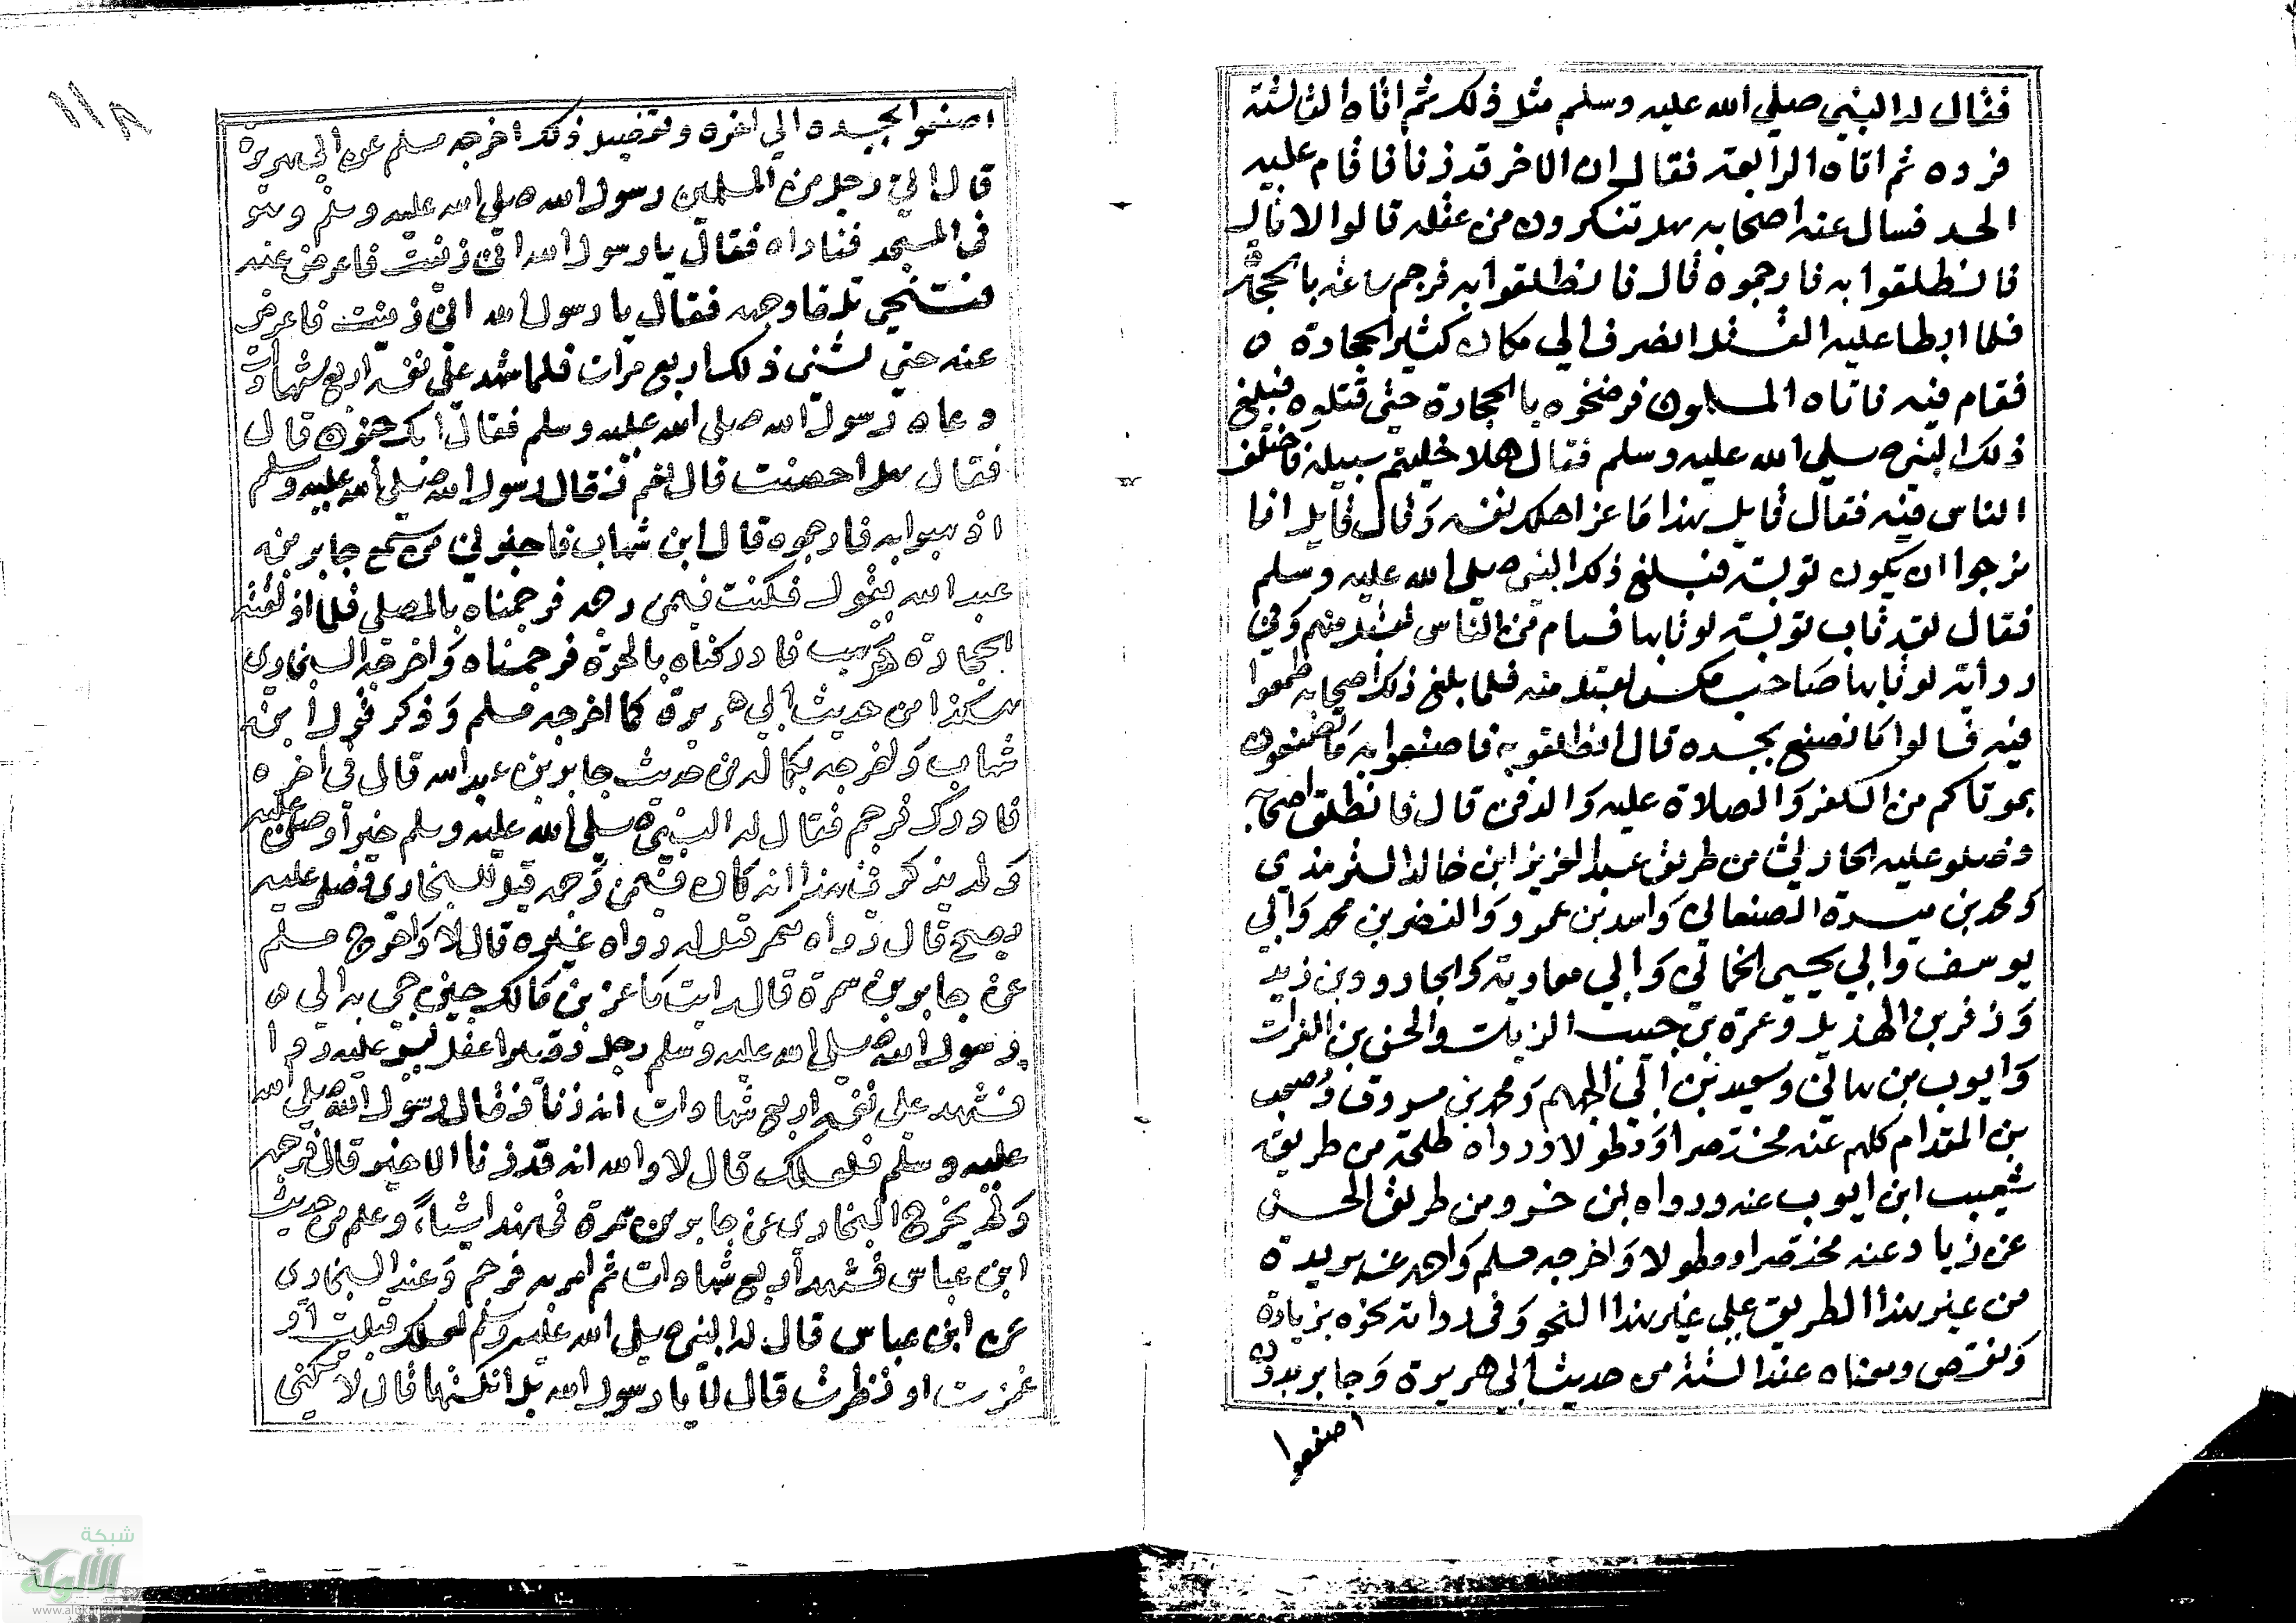 فقال له النبي صلي الله عليه وسلم مثل ذلك ثم اتاه الثالثة
فرده ثم اتاه الرابعة فقال ان الاخر قد زنا فاقام عليه
الحد فسال عنه اصحابه هل تنكرون من عقله قالوا لا قال
فانطلقوا به فارجموه قال فانطلقوا به فرجم ساعة بالحجارة
فلما ابطا عليه القتل انصرف الي مكان كثير الحجارة ه
فقام فيه فاتاه المسلمون فرضخوه بالحجارة حتي قتلوه فبلغ
ذلك النبي صلي الله عليه وسلم فقال هلا خليتم سبيله فاختلف
الناس فيه فقال قايل هذا ماعز اهلك نفسه وقال قايل انا
نرجوا ان يكون توبة فبلغ ذلك النبي صلي الله عليه وسلم
فقال لقد تاب توبة لو تابها فيام من الناس لقبل منهم وفي
رواية لو تابها صاحب مكس لقبل منه فلما بلغ ذلك اصحابه طمعوا
فيه فقالوا ما نصنع بجسده قال انطلقو به فاصنعوا به ما تصنعون
بموتاكم من الكفن والصلاة عليه والدفن قال فانطلق اصحابه
وصلو عليه الحارثي من طريق عبد العزيز ابن خالد الترمذي
ومحمد بن ميسرة الصنعاني واسد بن عمرو والنضر بن محمد وابي
يوسف وابي يحيي الحماني وابي معاوية والجارود بن زيد
وزفر بن الهذيل وحمزة بن حبيب الزيات والحسن بن الفرات
وايوب بن هاني وسعيد بن ابي الجهم ومحمد بن مسروق ومصعب
بن المقدام كلهم عنه مختصرا ومطولا ورواه طلحة من طريق
شعيب ابن ايوب عنه ورواه ابن خسرو من طريق الحسن
عن زياد عنه مختصرا ومطولا واخرجه مسلم واحمد عن بريدة
من غير هذا الطريق علي غير هذا النحو وفي رواية نحوه بزيادة
ونقص ومعناه عند الستة من حديث ابي هريرة وجابر بدون
اصنعوا
١١٨
اصنعوا بجسده الي اخره وتفصيل ذلك اخرجه مسلم عن ابي هريرة
قال اتي رجل من المسلمين رسول الله صلي الله عليه وسلم وهو
في المسجد فناداه فقال يا رسول الله اني زنيت فاعرض عنه
فتنحي تلقا وجهه فقال يا رسول الله اني زنيت فاعرض
عنه حتي ثني ذلك اربع مرات فلما شهد علي نفسه اربع شهادات
دعاه رسول الله صلي الله عليه وسلم فقال ابك جنون قال
فقال هل احصنت قال نعم فقال رسول الله صلي الله عليه وسلم
اذهبوا به فارجموه قال ابن شهاب فاخبرني من سمع جابر بن
عبد الله يقول فكنت فيمن رجمه فرجمناه بالمصلي فلما اذلقته
الحجارة هرب فادركناه بالحرة فرجمناه واخرجه البخاري
هكذا من حديث ابي هريرة كما اخرجه مسلم وذكر قول ابن
شهاب واخرجه بكماله من حديث جابر بن عبد الله قال في اخره
فادرك فرجم فقال له النبي صلي الله عليه وسلم خيرا وصلي عليه
ولم يذكر في هذا انه كان فيمن رجمه قيل للبخاري فصلي عليه
يصح قال رواه معمر قيل له رواه غيره قال لا واخرج مسلم
عن جابر بن سمرة قال رايت ماعز بن مالك حين جي به الي ه
رسول الله صلي الله عليه وسلم رجل قصير اعضل ليس عليه ردا
فشهد علي نفسه اربع شهادات انه زنا فقال رسول الله صلي الله
عليه وسلم فلعلك قال لا والله انه قد زنا الاخر قال فرجمه
ولم يخرج البخاري عن جابر بن سمرة في هذا شيا، وعلم من حديث
ابن عباس فشهد اربع شهادات ثم امر به فرجم وعند البخاري
عن ابن عباس قال له النبي صلي الله عليه وسلم لعلك قبلت او
غمزت او نظرت قال لا يا رسول الله بل انكتها قال لا يكني
شبكة
الألوكة